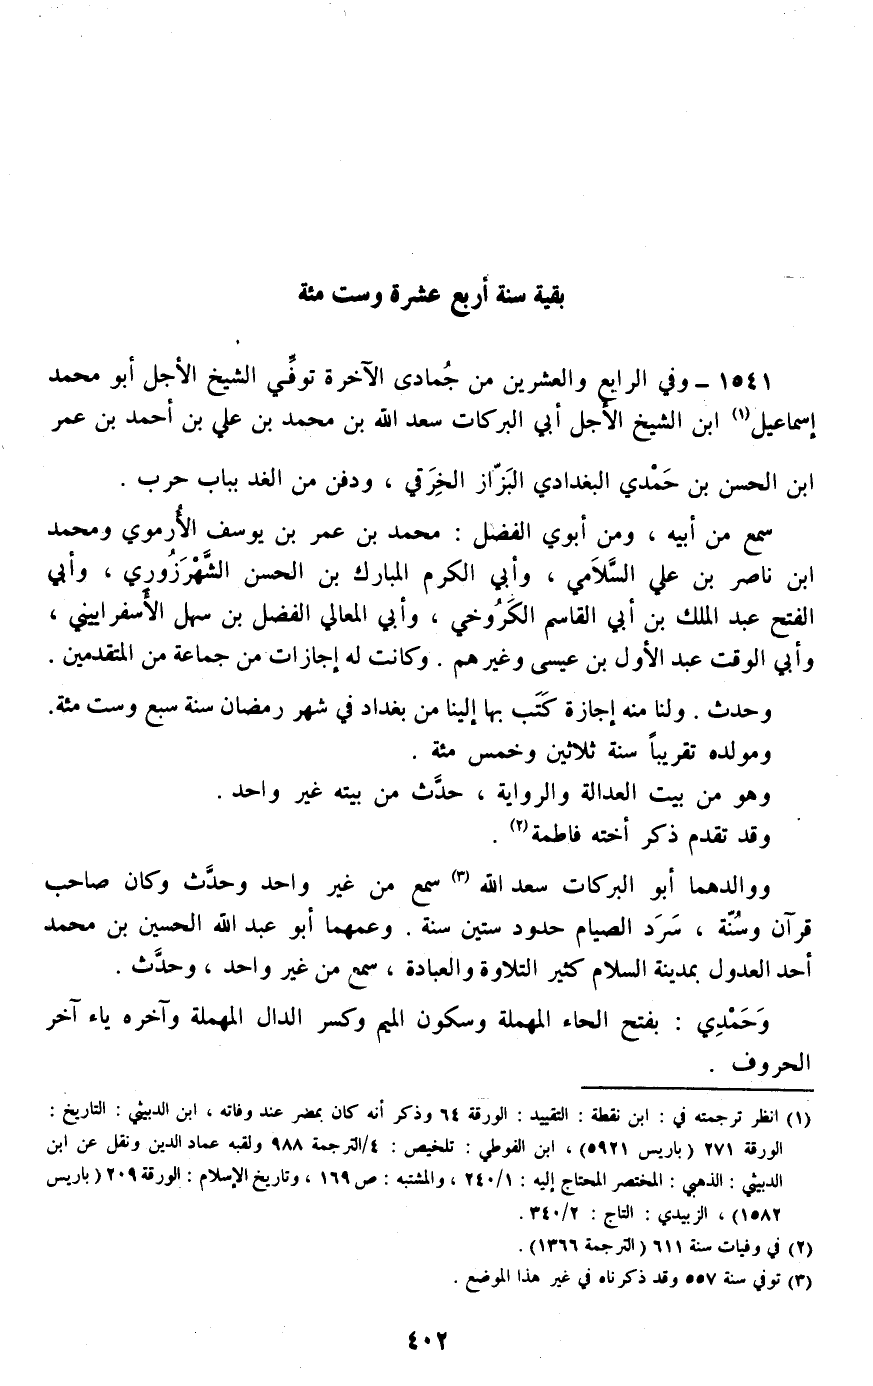 بقية سنة أربع عشرة وست مئة
١٥٤١ – وفي الرابع والعشرين من جُمادى الآخرة توفِّي الشيخ الأجل أبو محمد
إسماعيل(١) ابن الشيخ الأجل أبي البركات سعد الله بن محمد بن علي بن أحمد بن عمر
ابن الحسن بن حَمْدي البغدادي البَزّاز الخِرَقي ، ودفن من الغد بباب حرب .
سمع من أبيه ، ومن أبوي الفضل : محمد بن عمر بن يوسف الأُرموي ومحمد
ابن ناصر بن علي السَّلاَمي ، وأبي الكرم المبارك بن الحسن الشَّهْرَزُوري ، وأبي
الفتح عبد الملك بن أبي القاسم الكَرُوخي ، وأبي المعالي الفضل بن سهل الأسفراييني ،
وأبي الوقت عبد الأول بن عيسى وغيرهم . وكانت له إجازات من جماعة من المتقدمين .
وحدث . ولنا منه إجازة كَتَب بها إلينا من بغداد في شهر رمضان سنة سبع وست مئة.
ومولده تقريباً سنة ثلاثين وخمس مئة .
وهو من بيت العدالة والرواية ، حدَّث من بيته غير واحد .
وقد تقدم ذكر أخته فاطمة(٢) .
ووالدهما أبو البركات سعد الله (٣) سمع من غير واحد وحدَّث وكان صاحب
قرآن وسُنّة ، سَرَد الصيام حدود ستين سنة . وعمهما أبو عبد الله الحسين بن محمد
أحد العدول بمدينة السلام كثير التلاوة والعبادة ، سمع من غير واحد ، وحدَّث .
وَحَمْدِي : بفتح الحاء المهملة وسكون الميم وكسر الدال المهملة وآخره ياء آخر
الحروف .
(١) انظر ترجمته في : ابن نقطة : التقييد : الورقة ٦٤ وذكر أنه كان بمضر عند وفاته ، ابن الدبيثي : التاريخ :
الورقة ٢٧١ ( باريس ٥٩٢١) ، ابن الفوطي : تلخيص : ٤/الترجمة ٩٨٨ ولقبه عماد الدين ونقل عن ابن
الدبيثي : الذهبي : المختصر المحتاج إليه : ٢٤٠/١ ، والمشتبه : ص ١٦٩ ، وتاريخ الإسلام : الورقة ٢٠٩ ( باريس
١٥٨٢) ، الزبيدي : التاج : ٣٤٠/٢ .
(٢) في وفيات سنة ٦١١ ( الترجمة ١٣٦٦) .
(٣) توفي سنة ٥٥٧ وقد ذكرناه في غير هذا الموضع .
٤٠٢